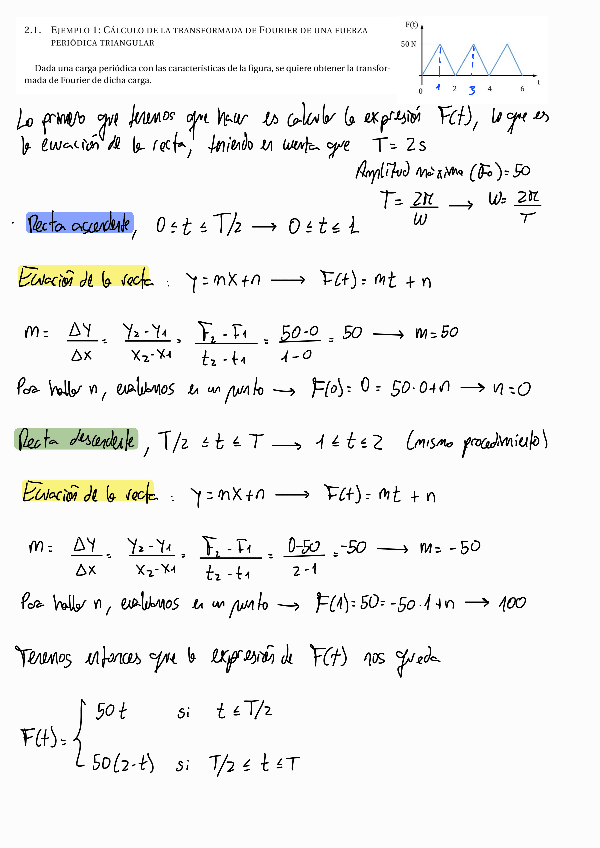 2.1. EJEMPLO 1: CÁLCULO DE LA TRANSFORMADA DE FOURIER DE UNA FUERZA
PERIÓDICA TRIANGULAR
Dada una carga periódica con las características de la figura, se quiere obtener la transfor-
mada de Fourier de dicha carga.
F(t)
50 N
0 1 2 3 4 6 t
Lo primero que tenemos que hacer es calcular la expresión F(t), lo que es
la ecuación de la recta, teniendo en cuenta que T = 2s
Amplitud máxima (F₀) = 50
T = 2π/W → W = 2π/T
Recta ascendente, 0 ≤ t ≤ T/2 → 0 ≤ t ≤ 1
Ecuación de la recta : y = mx + n → F(t) = mt + n
m = ΔY/ΔX = Y₂-Y₁/X₂-X₁ = F₂-F₁/t₂-t₁ = 50-0/1-0 = 50 → m = 50
Para hallar n, evaluamos en un punto → F(0) = 0 = 50·0+n → n = 0
Recta descendente, T/2 ≤ t ≤ T → 1 ≤ t ≤ 2 (mismo procedimiento)
Ecuación de la recta : y = mx + n → F(t) = mt + n
m = ΔY/ΔX = Y₂-Y₁/X₂-X₁ = F₂-F₁/t₂-t₁ = 0-50/2-1 = -50 → m = -50
Para hallar n, evaluamos en un punto → F(1) = 50 = -50·1+n → 100
Tenemos entonces que la expresión de F(t) nos queda
F(t) = { 50t si t ≤ T/2
50(2-t) si T/2 ≤ t ≤ T